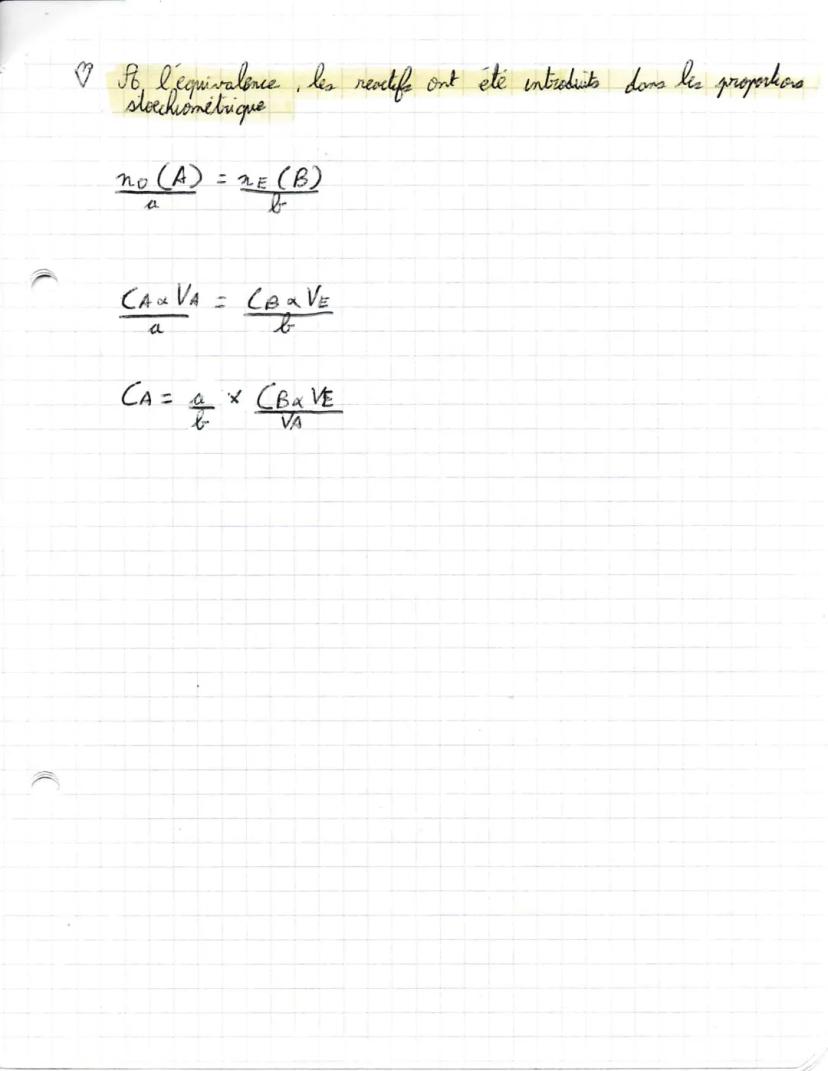 ♡ A l'équivalence, les reactifs ont été introduits dans les proportions
stoechiométrique
n₀(A)/a = n_E(B)/b
C_A × V_A/a = C_B × V_E/b
C_A = a/b × C_B × V_E/V_A